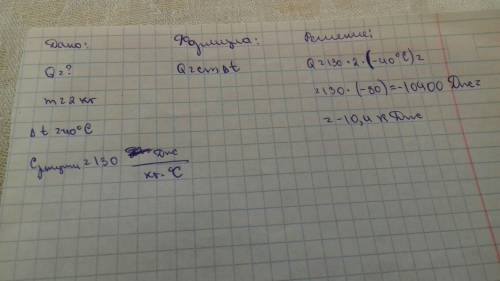 Дано:
Q=?
m=2 кг
Δt=40°C
Cртути=130 Дж
кг·°C
Формула:
Q=cmΔt
Решение:
Q=130·2·(-40°C)=
=130·(-80)=-10400 Дж=
=-10,4 кДж